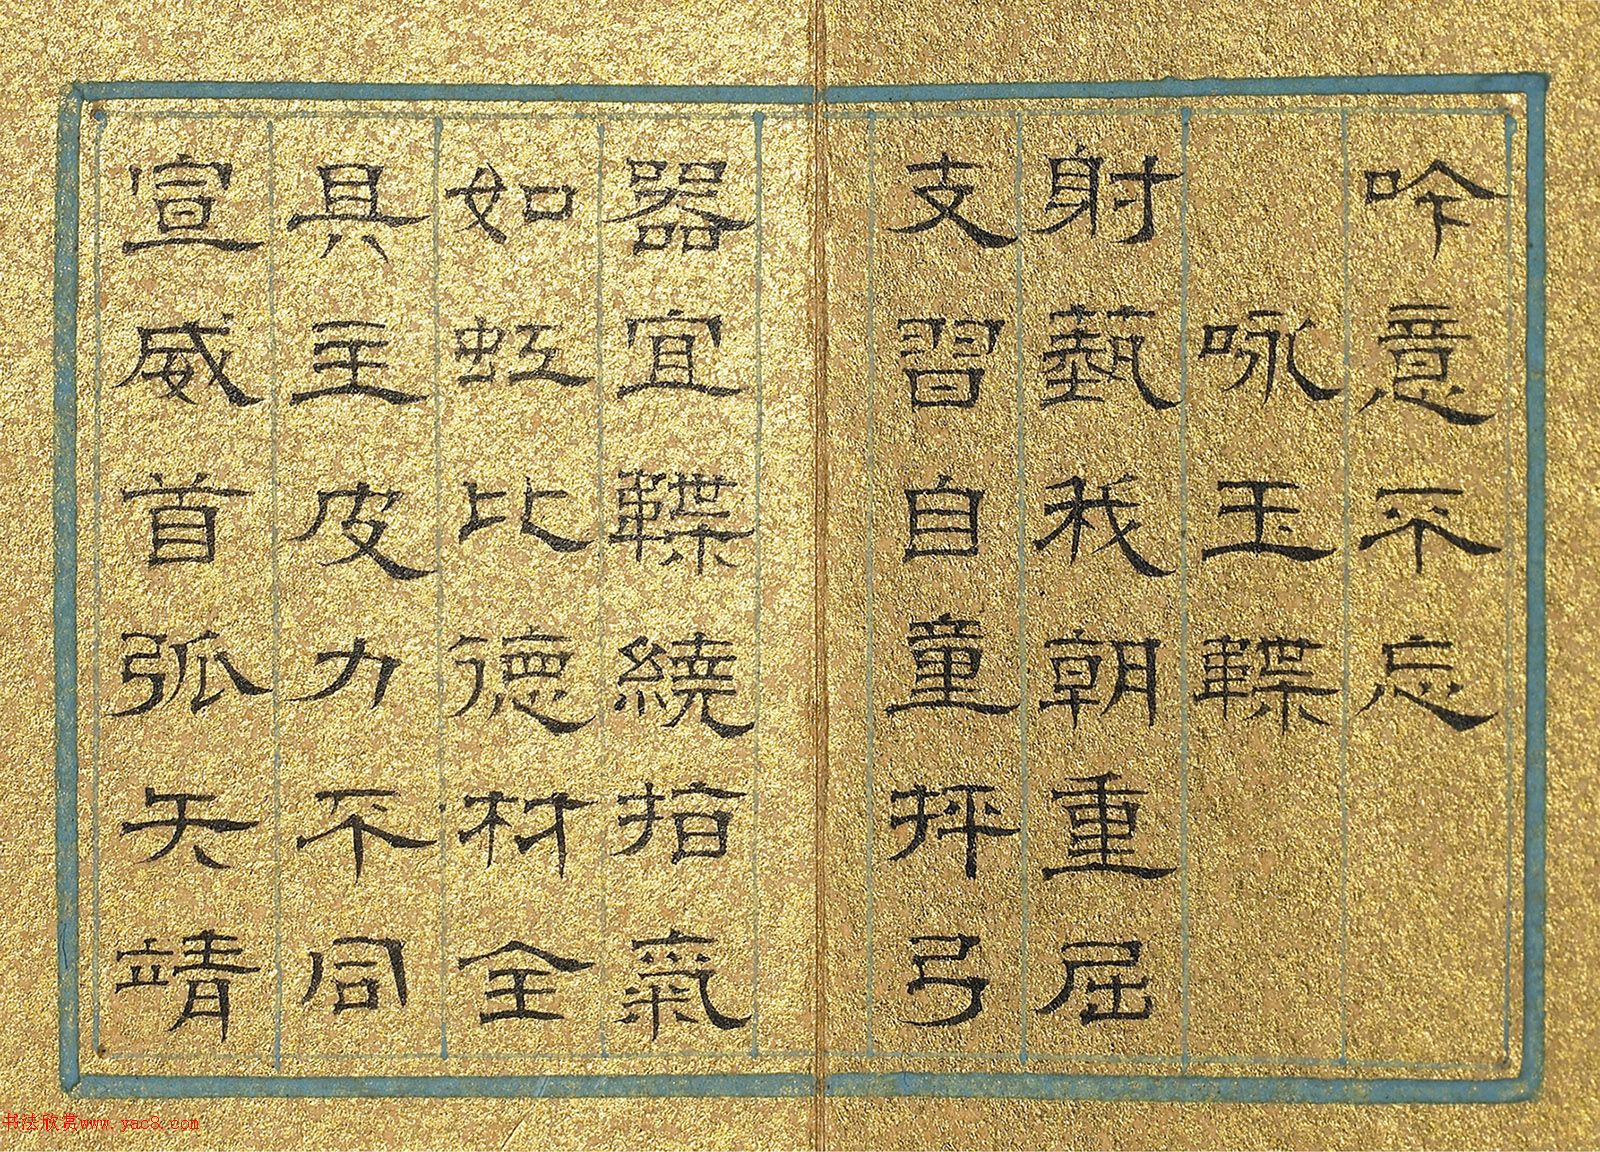 吟意不忘
咏玉鞢
射藝我朝重屈
支習自童抨弓
器宜鞢繞指氣
如虹比德材全
具主皮力不同
宣威首弧矢靖
书法欣赏www.yac8.com